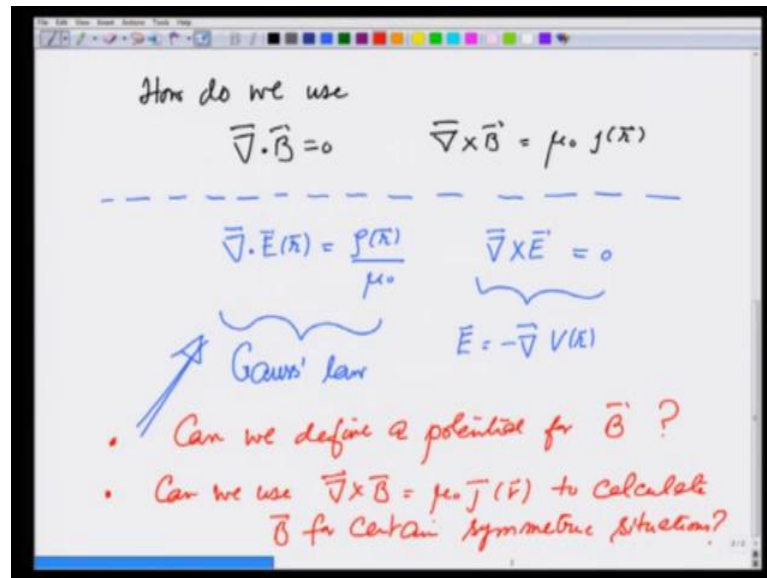 File Edit View Insert Actions Tools Help
How do we use
∇⃗.B⃗ = 0    ∇⃗×B⃗ = μ₀ J(r̄)
∇⃗.E⃗(r̄) = ρ(r̄)/μ₀    ∇⃗×E⃗ = 0
Gauss' law    E⃗ = -∇⃗ V(r̄)
• Can we define a potential for B⃗ ?
• Can we use ∇⃗×B⃗ = μ₀ J⃗(r̄) to calculate
B⃗ for certain symmetric situations?
2/2